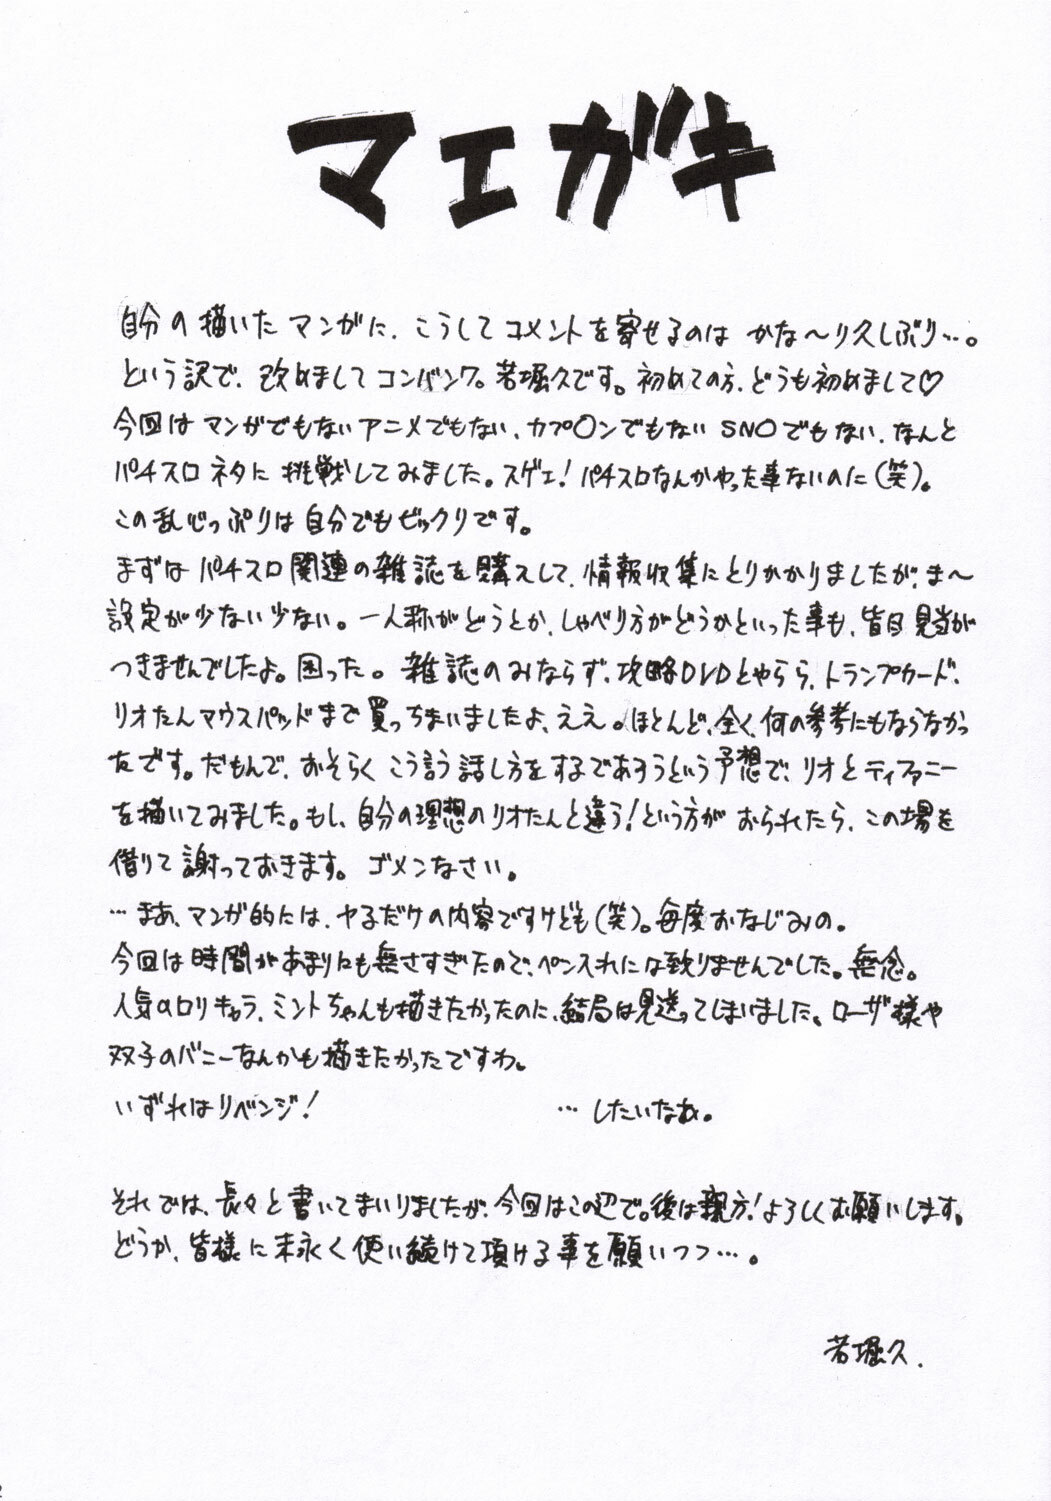 マエガキ
自分の描いたマンガに、こうしてコメントを寄せるのは かな～り久しぶり…。
という訳で、改めましてコンバンワ。若堀久です。初めての方、どうも初めまして♡
今回はマンガでもないアニメでもない、カプ〇ンでもない SN〇でもない、なんと
パチスロネタに挑戦してみました。スゲェ！パチスロなんかやった事ないのに（笑）。
この乱心っぷりは自分でもビックリです。
まずはパチスロ関連の雑誌を購入して、情報収集にとりかかりましたが、ま～
設定が少ない少ない。一人称がどうとか、しゃべり方がどうかといった事も、皆目見当が
つきませんでしたよ。困った。雑誌のみならず、攻略DVDとやらら、トランプカード、
リオたんマウスパッドまで買っちまいましたよ、ええ。ほとんど、全く、何の参考にもならなかっ
たです。だもんで、おそらくこう言う話し方をするであろうという予想で、リオとティファニー
を描いてみました。もし、自分の理想のリオたんと違う！という方がおられたら、この場を
借りて謝っておきます。ゴメンなさい。
…まあ、マンガ的には、ヤるだけの内容ですけども（笑）。毎度おなじみの。
今回は時間があまりにも無さすぎたので、ペン入れには致りませんでした。無念。
人気のロリキャラ、ミントちゃんも描きたかったのに、結局は見送ってしまいました。ローザ様や
双子のバニーなんかも描きたかったですわ。
いずれはリベンジ！ …したいなぁ。
それでは、長々と書いてまいりましたが、今回はこの辺で。後は親方！よろしくお願いします。
どうか、皆様に末永く使い続けて頂ける事を願いつつ…。
若堀久.
2